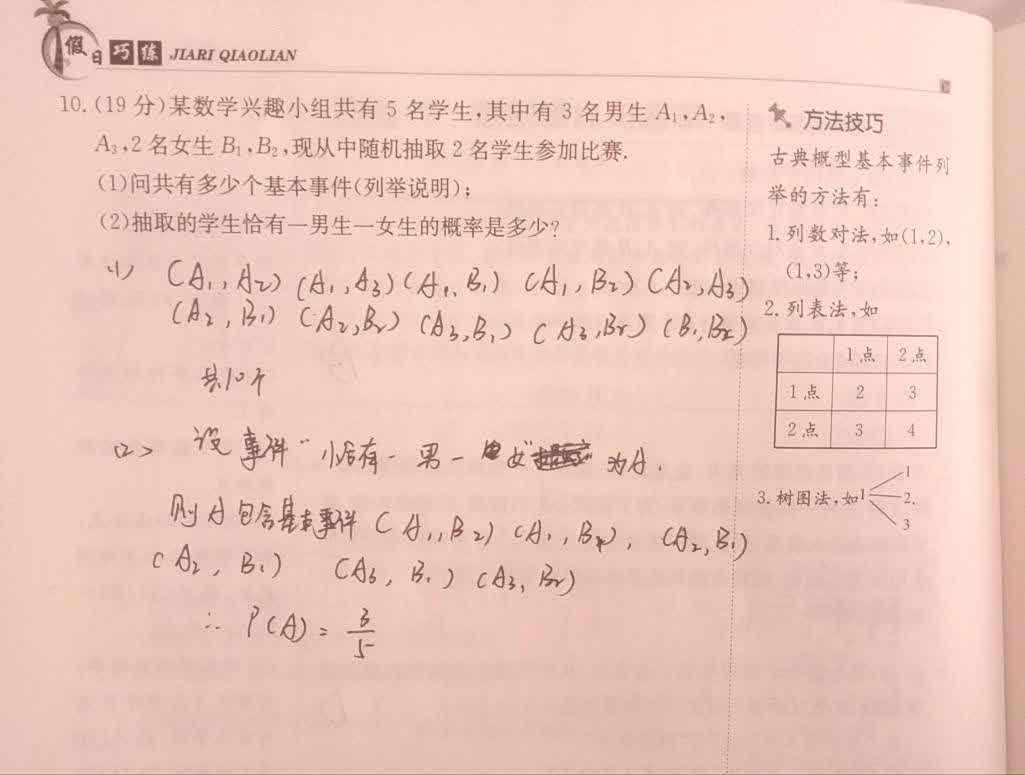 假日巧练 JIARI QIAOLIAN
10.(19分)某数学兴趣小组共有5名学生,其中有3名男生A₁,A₂,
A₃,2名女生B₁,B₂,现从中随机抽取2名学生参加比赛.
(1)问共有多少个基本事件(列举说明);
(2)抽取的学生恰有一男生一女生的概率是多少?
(1) (A₁,A₂) (A₁,A₃) (A₁,B₁) (A₁,B₂) (A₂,A₃)
(A₂,B₁) (A₂,B₂) (A₃,B₁) (A₃,B₂) (B₁,B₂)
共10个
(2) 设事件"恰有一男一女"为A.
则A包含基本事件 (A₁,B₂) (A₁,B₂), (A₂,B₁)
(A₂,B₁) (A₃,B₁) (A₃,B₂)
∴ P(A) = 3/5
方法技巧
古典概型基本事件列
举的方法有:
1.列数对法,如(1,2),
(1,3)等;
2.列表法,如
1点 2点
1点 2 3
2点 3 4
3.树图法,如1
1
2.
3